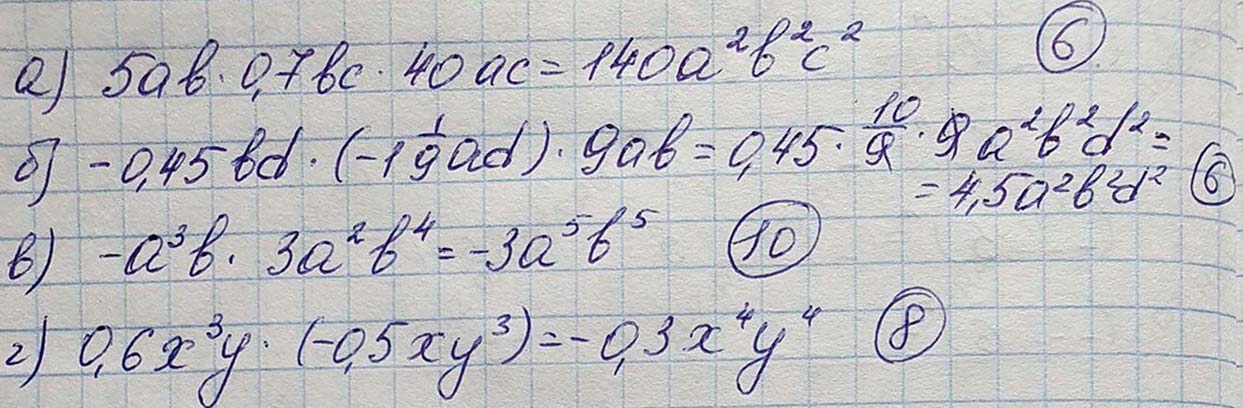 а) 5ab · 0,7bc · 40ac = 140a²b²c² ⑥
б) -0,45bd · (-1 1/9 ad) · 9ab = 0,45 · 10/9 · 9 a²b²d² =
= 4,5a²b²d² ⑥
в) -a³b · 3a²b⁴ = -3a⁵b⁵ ⑩
г) 0,6x³y · (-0,5xy³) = -0,3x⁴y⁴ ⑧